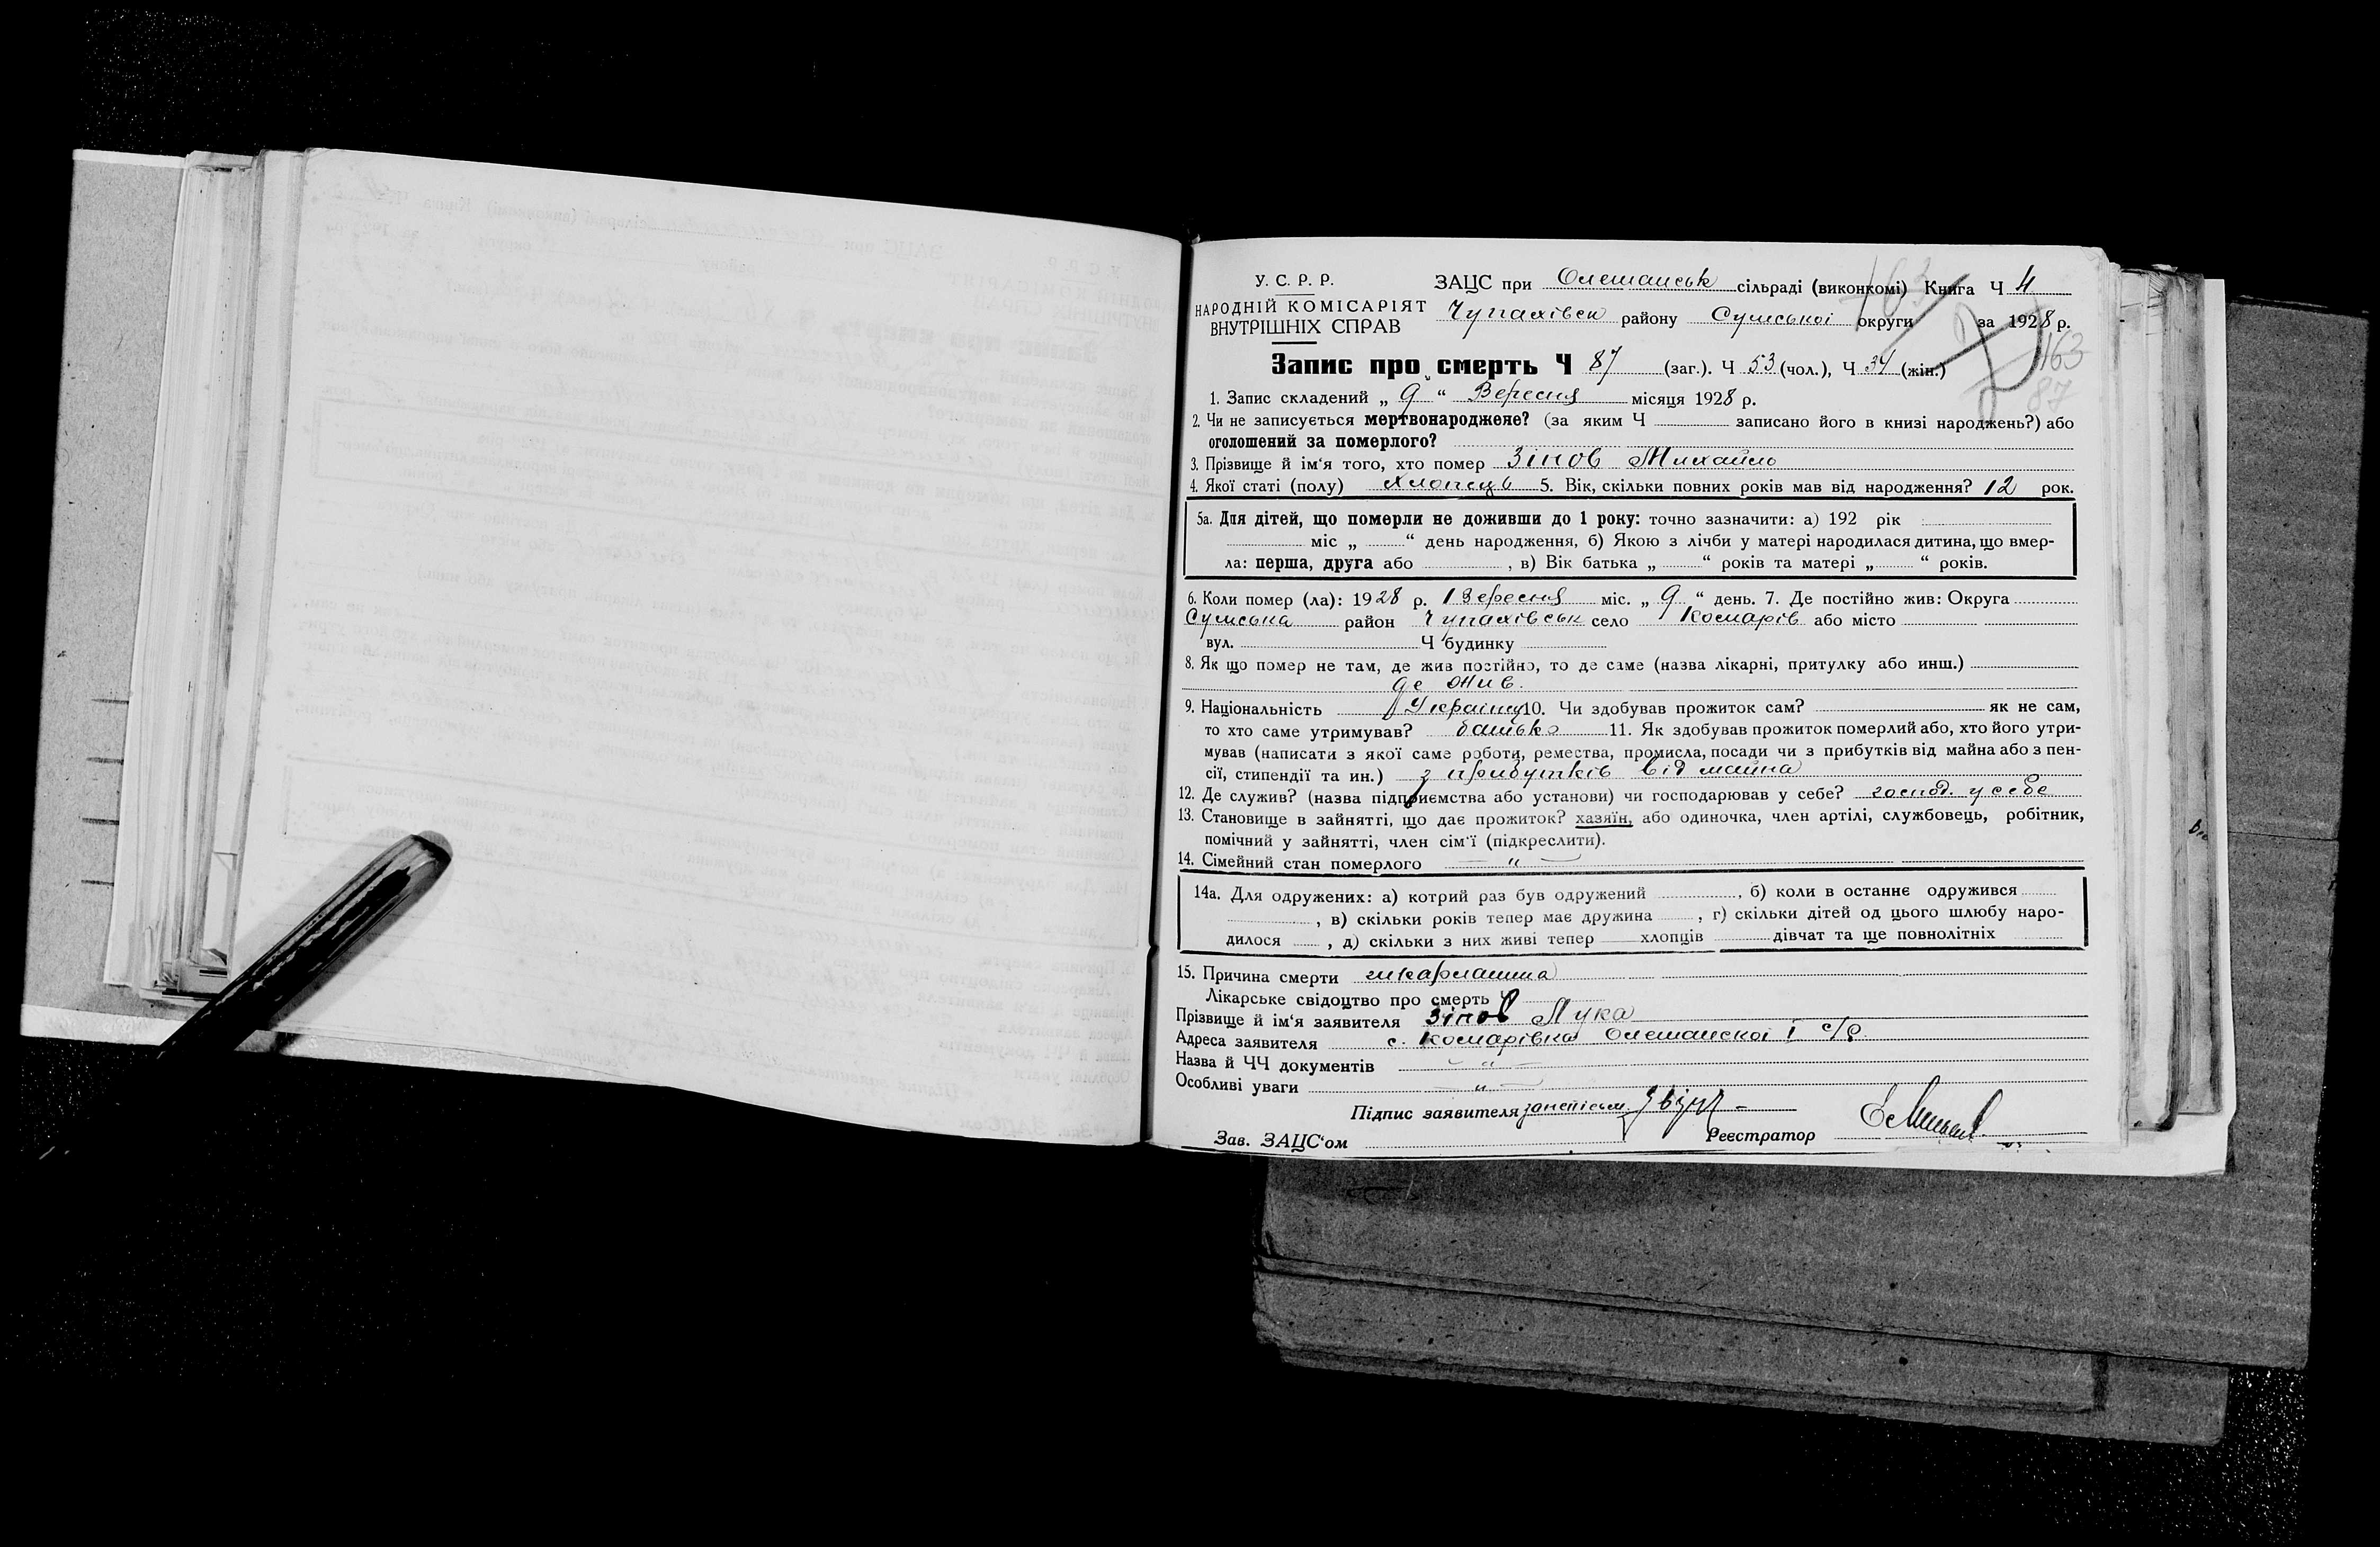 У. С. Р. Р.
НАРОДНІЙ КОМІСАРІЯТ
ВНУТРІШНІХ СПРАВ
ЗАЦС при Олешанськ сільраді (виконкомі) Книга Ч 4
Чупахівськ району Сумської округи за 1928 р.
163
163
87
Запис про смерть Ч 87 (заг.). Ч 53 (чол.), Ч 34 (жін.)
1. Запис складений „ 9 “ Вересня місяця 1928 р.
2. Чи не записується мертвонароджене? (за яким Ч записано його в книзі народжень?) або
оголошений за померлого?
3. Прізвище й ім‘я того, хто помер Зінов Михайло
4. Якої статі (полу) хлопець 5. Вік, скільки повних років мав від народження? 12 рок.
5а. Для дітей, що померли не доживши до 1 року: точно зазначити: а) 192 рік
міс „ “ день народження, б) Якою з лічби у матері народилася дитина, що вмер-
ла: перша, друга або , в) Вік батька „ “ років та матері „ “ років.
6. Коли помер (ла): 1928 р. Вересня міс. „ 9 “ день. 7. Де постійно жив: Округа
Сумська район Чупахівськ село Комарів або місто
вул. Ч будинку
8. Як що помер не там, де жив постійно, то де саме (назва лікарні, притулку або инш.)
де жив.
9. Національність Українц 10. Чи здобував прожиток сам? як не сам,
то хто саме утримував? батько 11. Як здобував прожиток померлий або, хто його утри-
мував (написати з якої саме роботи, ремества, промисла, посади чи з прибутків від майна або з пен-
сії, стипендії та ин.) з прибутків від майна
12. Де служив? (назва підприємства або установи) чи господарював у себе? госпд. у себе
13. Становище в зайнятті, що дає прожиток? хазяїн, або одиночка, член артілі, службовець, робітник,
помічний у зайнятті, член сім‘ї (підкреслити).
14. Сімейний стан померлого — „ —
14а. Для одружених: а) котрий раз був одружений , б) коли в останнє одружився
, в) скільки років тепер має дружина , г) скільки дітей од цього шлюбу наро-
дилося , д) скільки з них живі тепер хлопців дівчат та ще повнолітніх
15. Причина смерти шкарлатина
Лікарське свідоцтво про смерть Ч
Прізвище й ім‘я заявителя Зінов Лука
Адреса заявителя с. Комарівка Олешанської с/р
Назва й ЧЧ документів — „ —
Особливі уваги — „ —
Підпис заявителя
Зав. ЗАЦС‘ом Реєстратор